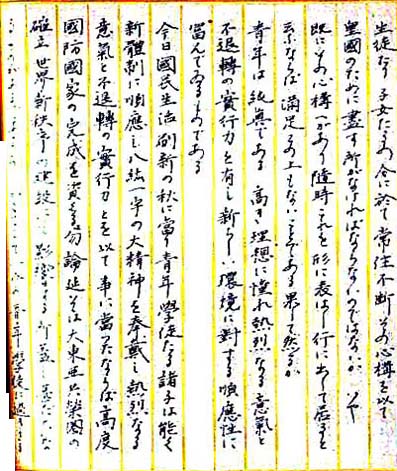 生徒たり子女たるの今に於て常住不断その心構を以て
皇國のために盡す所がなければならないのではないか
既にその心構へがあり随時これを形に表はし行に出して居ると
すならば満足この上もないことである果して然るか
青年は純真である 高き理想に憧れ熱烈なる意氣と
不退轉の實行力とを有し新らしい環境に對する順應性に
富んでゐるものである
今日國民生活刷新の秋に當り青年學徒たる諸子は能く
新體制に順應し八紘一宇の大精神を奉戴し熱烈なる
意氣と不退轉の實行力とを以て事に當つたならば高度
國防國家の完成を資くるは勿論延いては大東亜共榮圏の
確立世界新秩序の建設に
青年學徒に